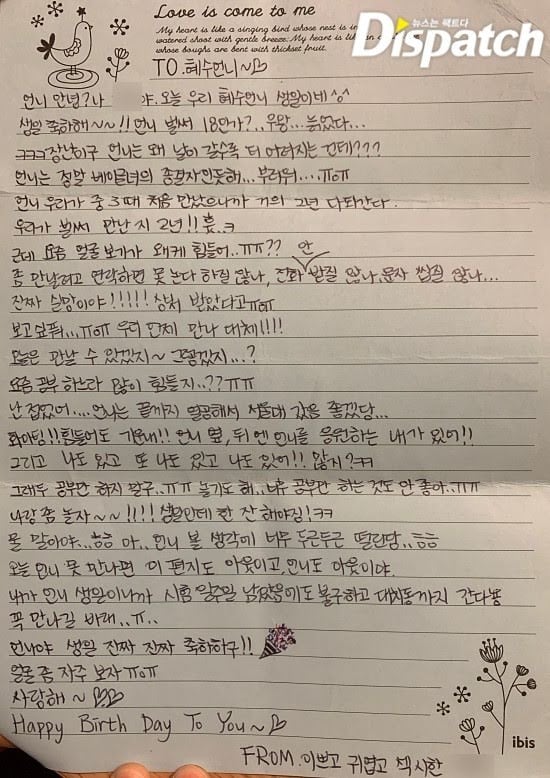 Love is come to me
My heart is like a singing bird whose nest is in
watered shoot with gentle breeze: My heart is like an
whose boughs are bent with thickset fruit.
뉴스는 팩트다
Dispatch
TO. 혜수언니~♡
언니 안녕? 나 야. 오늘 우리 혜수언니 생일이네^o^
생일 축하해~~!! 언니 벌써 18인가?.. 우왕... 늙었다...
ㅋㅋㅋ장난이구 언니는 왜 날이 갈수록 더 어려지는 건데???
언니는 정말 베이글녀의 종결자인듯해... 부러워....ㅠoㅠ
언니 우리가 중3때 처음 만났으니까 거의 2년 다되간다.
우리가 벌써 만난지 2년!! 흁.ㅋ
근데 요즘 얼굴보기가 왜케 힘들어..ㅠㅠ??
좀 만날려고 연락하면 못 논다 하질 않나, 전화 안 받질 않나, 문자 씹질 않나...
진짜 실망이야!!!!! 상처 받았다고ㅠoㅠ
보고싶퍼...ㅠoㅠ 우리 언제 만나 대체!!!!
오늘은 만날 수 있겠지~ 그렇겠지...?
요즘 공부 하느라 많이 힘들지..??ㅠㅠ
난 접었어.... 언니는 끝까지 열공해서 서울대 갔음 좋겠당...
화이팅!! 힘들어도 기운내!! 언니 옆, 뒤엔 언니를 응원하는 내가 있어!!
그리고 나도 있고 또 나도 있고 나도 있어!! 많지?ㅋㅋ
그래두 공부만 하지 말구..ㅠㅠ 놀기도 해.. 너무 공부만 하는 것도 안 좋아..ㅠㅠ
나랑 좀 놀자~~!!!! 생일인데 한 잔 해야징!ㅋㅋ
물 말이야..ㅎㅎ 아.. 언니 볼 생각에 너무 두근두근 떨린당..ㅎㅎ
오늘 언니 못 만나면 이 편지도 아웃이고 언니도 아웃이야.
내가 언니 생일이니까 시험 일주일 남았음에도 불구하고 대치동까지 간다뿅
꼭 만나길 바래..ㅠ..
언니야 생일 진짜 진짜 축하하구!!
얼굴 좀 자주 보자 ㅠoㅠ
사랑해~♡♡
Happy Birth Day To You~♡
ibis
FROM. 이쁘고 귀엽고 섹시한